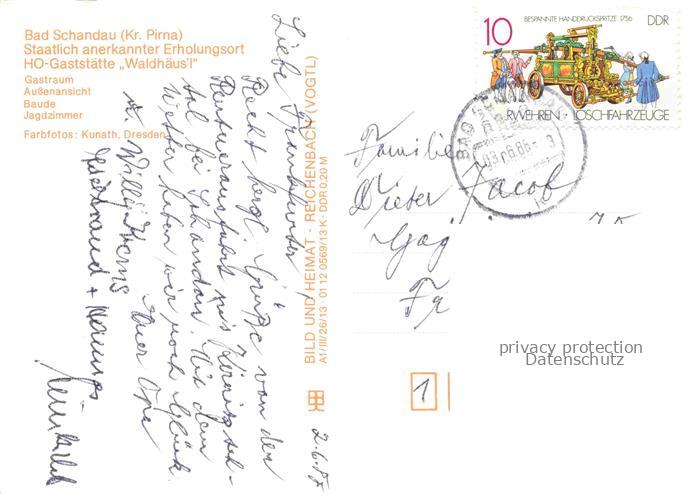 Bad Schandau (Kr. Pirna)
Staatlich anerkannter Erholungsort
HO-Gaststätte „Waldhäus'l"
Gastraum
Außenansicht
Baude
Jagdzimmer
Farbfotos: Kunath, Dresden
BILD UND HEIMAT · REICHENBACH (VOGTL)
A1/III/26/13 · 01 12 0569/13 K · DDR 0,20 M
10
BESPANNTE HANDDRUCKSPRITZE 1756
DDR
RWEHREN - LÖSCHFAHRZEUGE
BAD
Liebe Frankfurter,
Recht herzl. Grüße von der
Rentnerausfahrt ins
tal bei Schandau. Mit dem
Wetter haben wir noch Glück.
Euer Opa
u. Willy
+
2.6.87
Familie
Dieter Jacob
Fr
1
privacy protection
Datenschutz